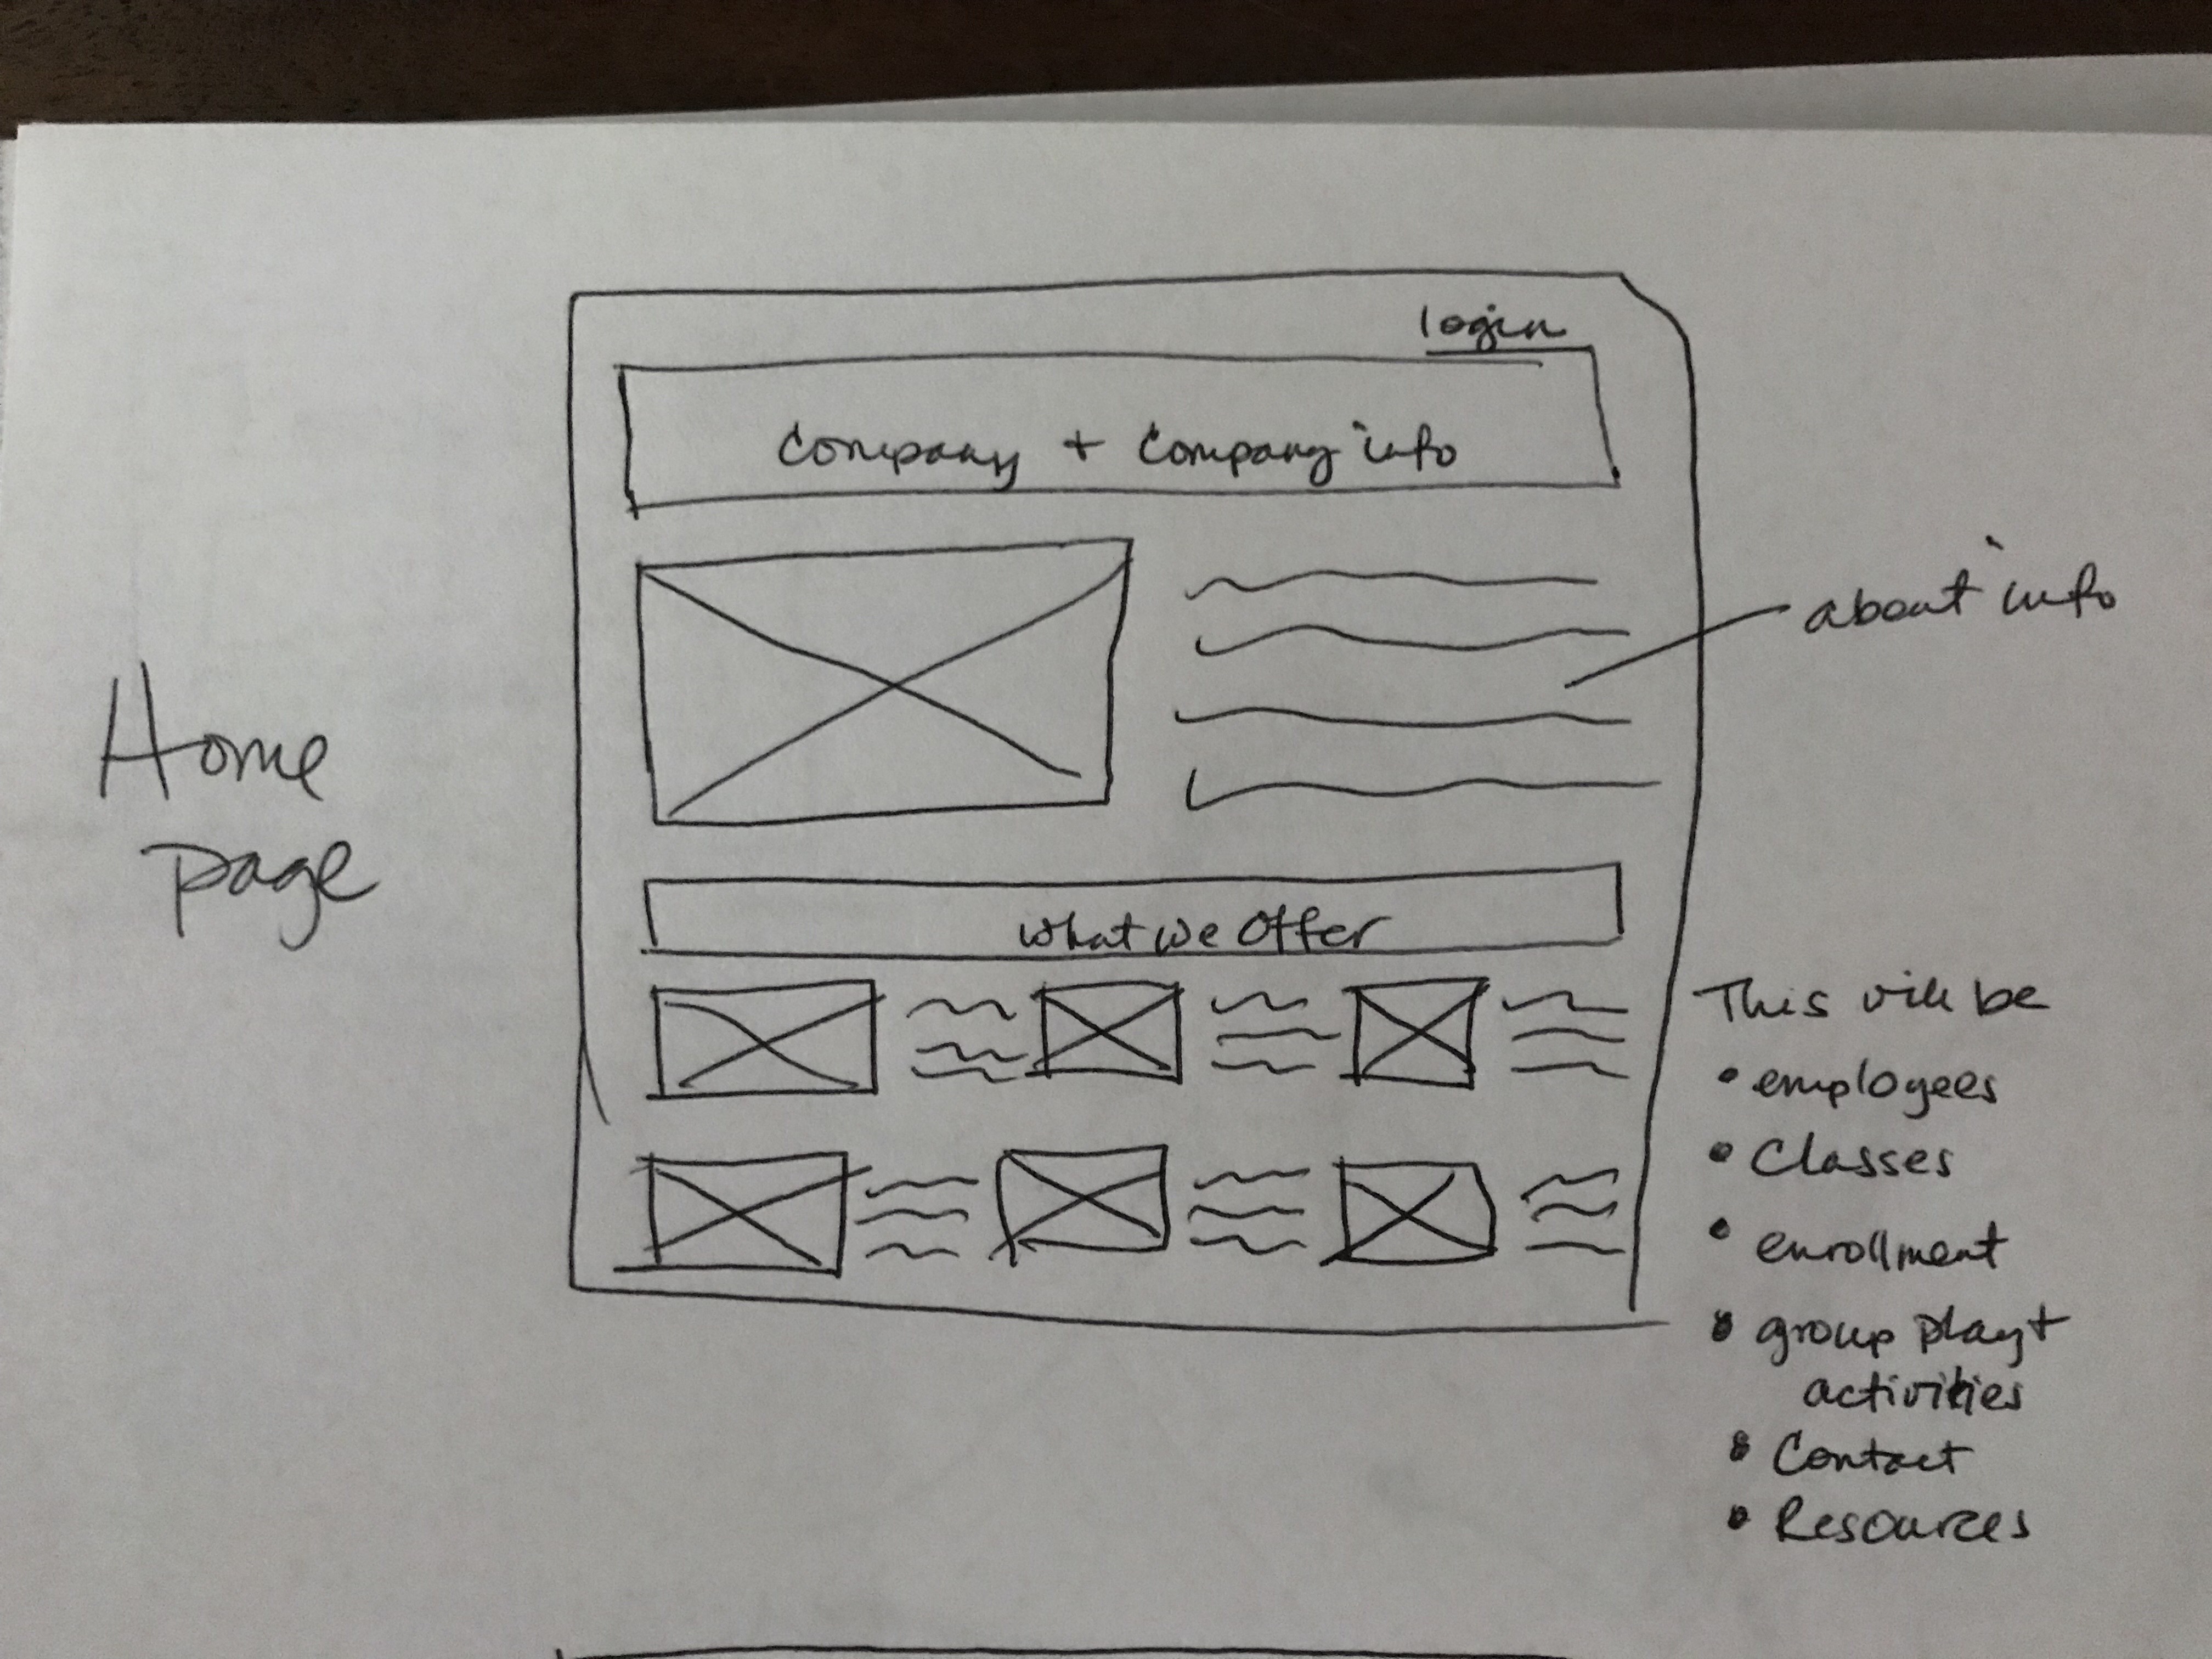 login
Company + Company info
about info
Home
page
What we Offer
This will be
• employees
• Classes
• enrollment
• group play +
activities
• Contact
• Resources